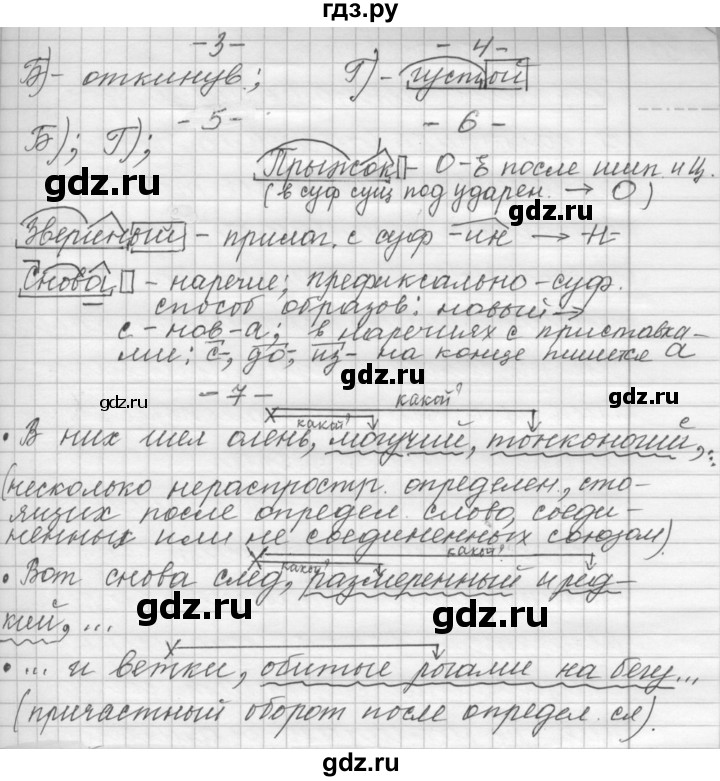 гдз.ру
-3-
-4-
Б) - откинув;
Г) - густой
-5-
-6-
Б); Г);
Прыжок - О-Ё после шип и Ц.
(в суф сущ под ударен. → О)
gdz.ru
gdz.ru
Звериный - прилаг. с суф -ин → -Н-
Снова - наречие; префиксально-суф.
способ образов: новый →
с-нов-а; в наречиях с приставка-
ми: с-, до-, из- на конце пишется а
gdz.ru
gdz.ru
-7-
gdz.ru
какой?
какой?
с
• В них шел олень, могучий, тонконогий,..
(несколько нераспростр. определен., сто-
ящих после определ. слово, соеди-
ненных или не соединенных союзом).
какой?
какой?
• Вот снова след, размеренный и ред-
gdz.ru
gdz.ru
с
кий, ...
• ... и ветки, обитые рогами на бегу...
(причастный оборот после определ. сл).
gdz.ru
gdz.ru
gdz.ru